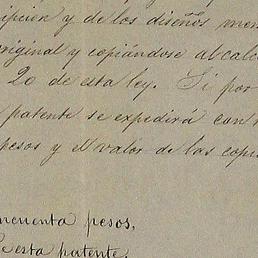 ipcion y de los diseños men
original y copiándose al calc
20 de esta ley. Si por
patente se expedirá con
pesos y el valor de las copi
ncuenta pesos,
de esta patente.